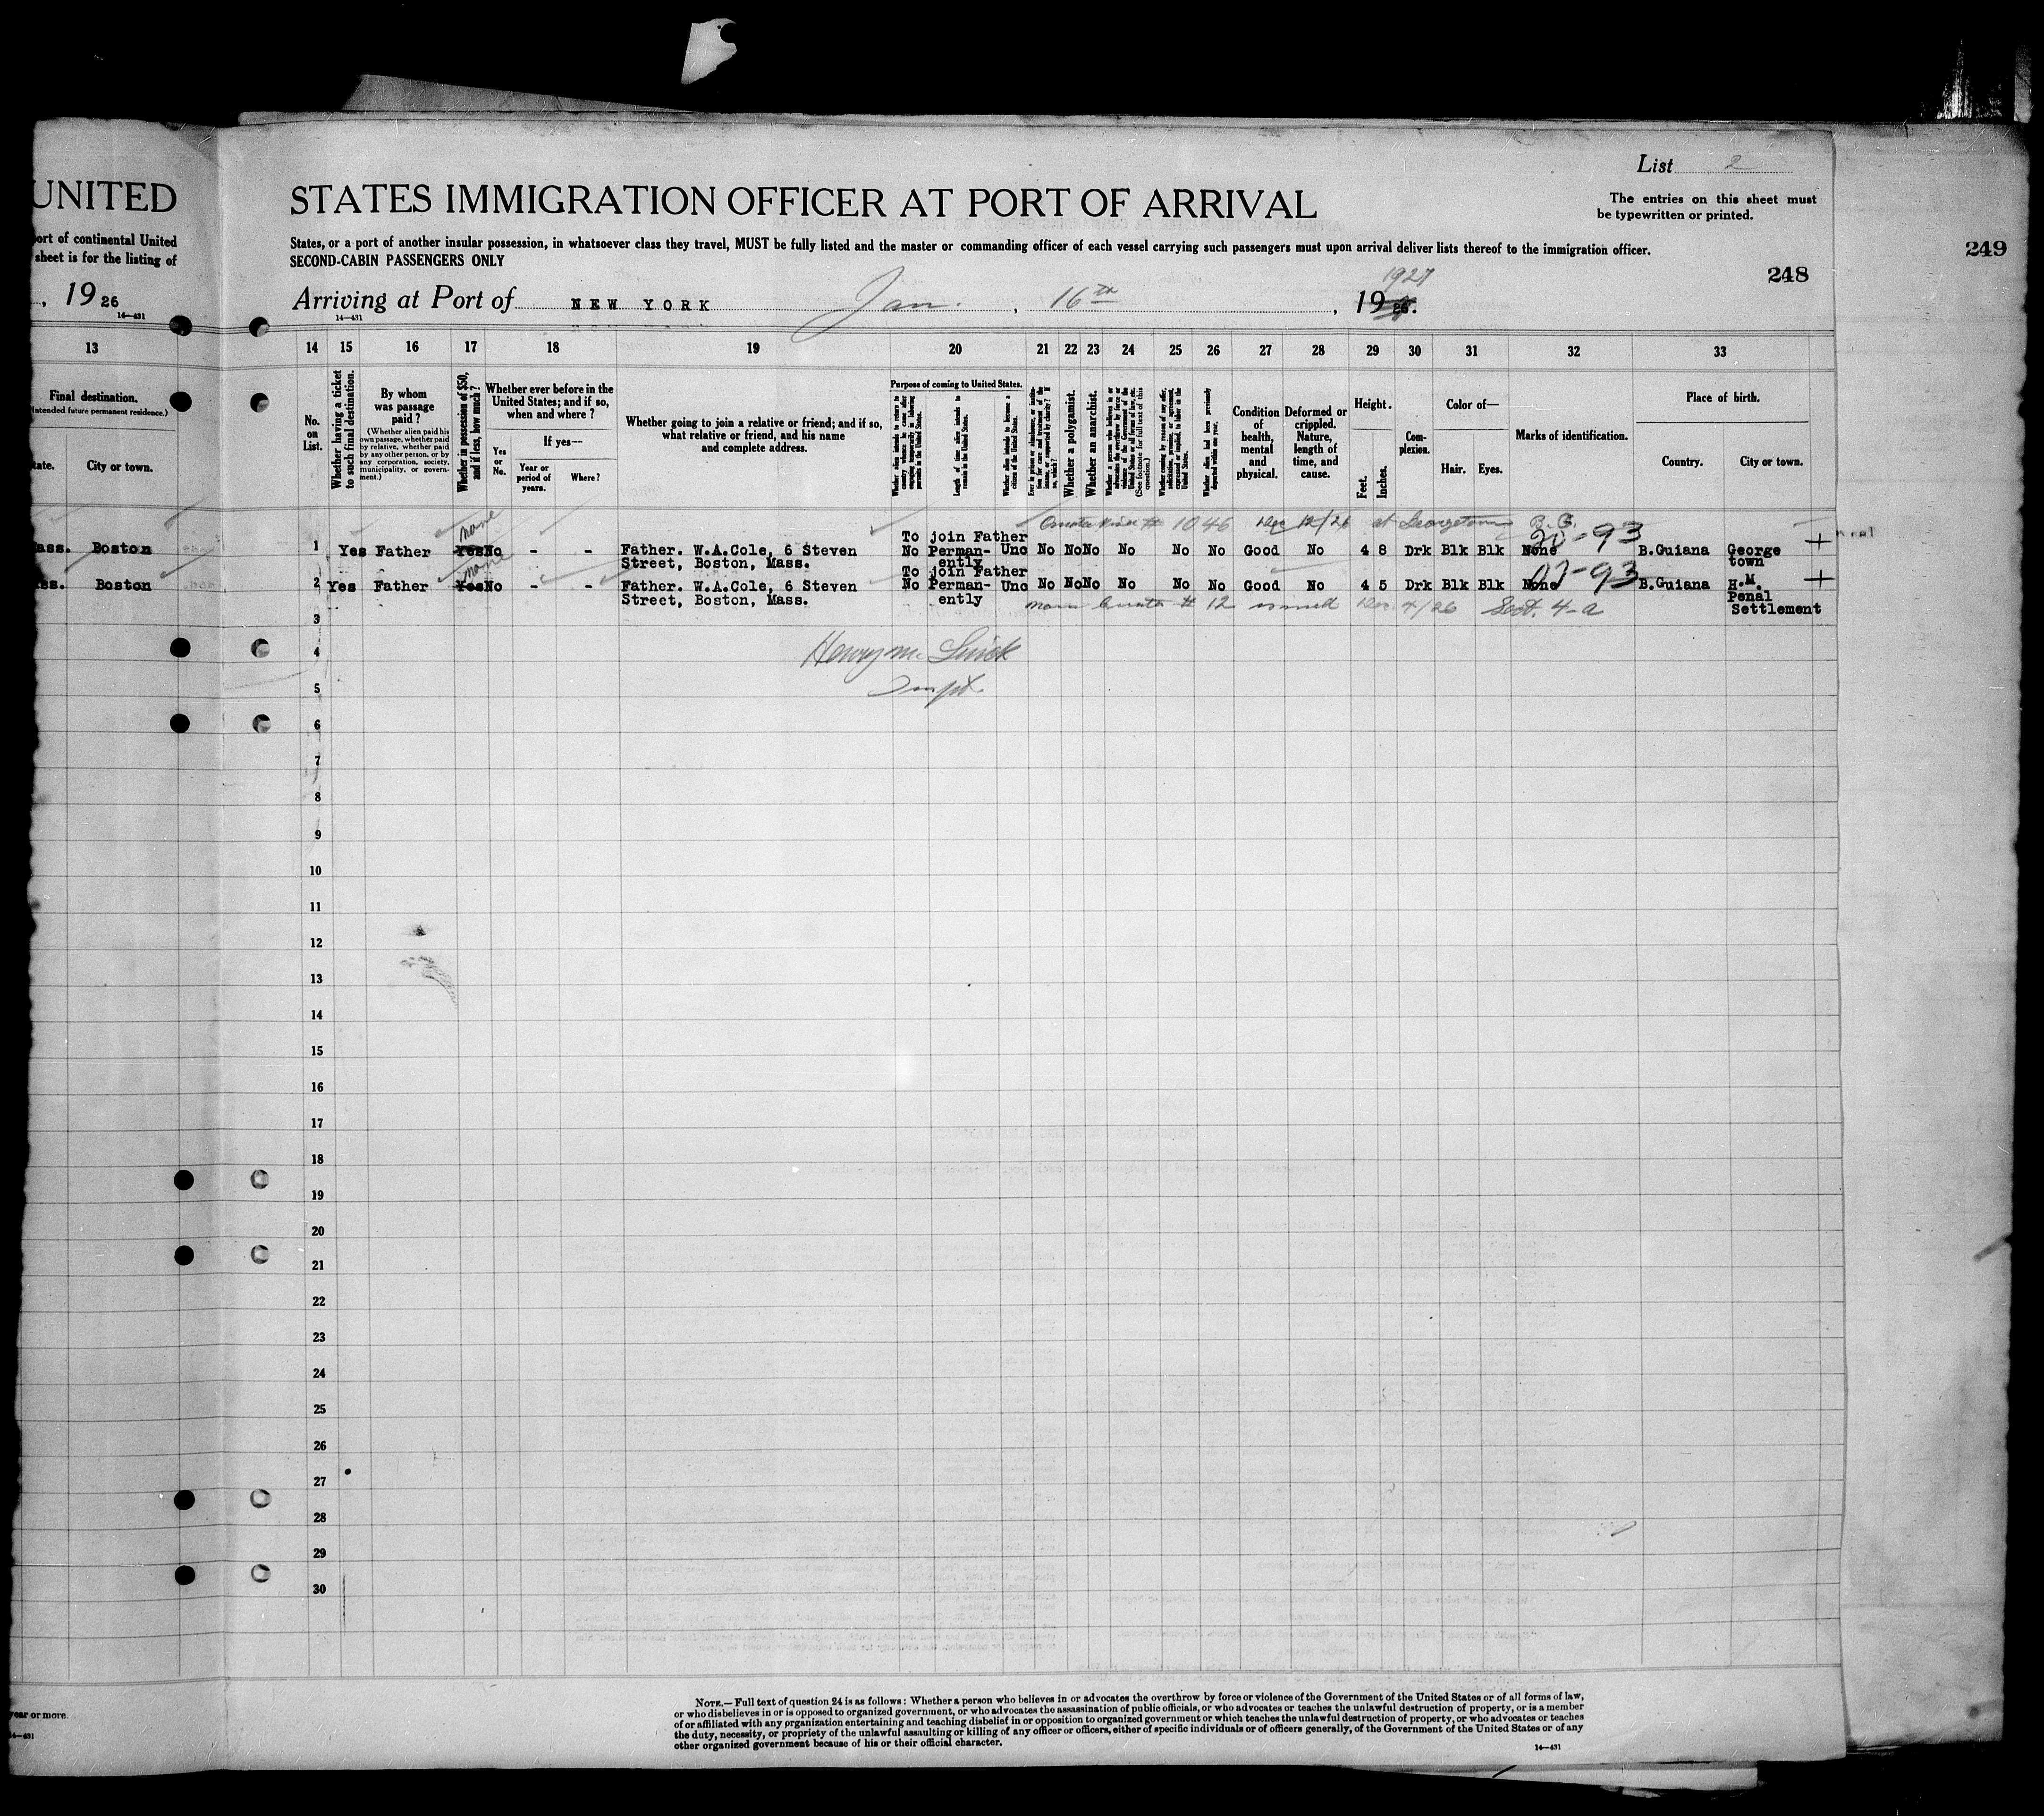 List 2
UNITED
STATES IMMIGRATION OFFICER AT PORT OF ARRIVAL
The entries on this sheet must
be typewritten or printed.
ort of continental United
sheet is for the listing of
States, or a port of another insular possession, in whatsoever class they travel, MUST be fully listed and the master or commanding officer of each vessel carrying such passengers must upon arrival deliver lists thereof to the immigration officer.
SECOND-CABIN PASSENGERS ONLY
249
248
, 19 26
14—431
Arriving at Port of NEW YORK Jan. , 16th , 1926. 1927
14—431
13 14 15 16 17 18 19 20 21 22 23 24 25 26 27 28 29 30 31 32 33
Final destination.
(Intended future permanent residence.)
tate. City or town.
No. on List.
Whether having a ticket to such final destination.
By whom was passage paid?
(Whether alien paid his own passage, whether paid by relative, whether paid by any other person, or by any corporation, society, municipality, or government.)
Whether in possession of $50, and if less, how much?
Whether ever before in the United States; and if so, when and where?
Yes or No.
If yes—
Year or period of years.
Where?
Whether going to join a relative or friend; and if so, what relative or friend, and his name and complete address.
Purpose of coming to United States.
Length of time alien intends to remain in the United States.
Whether alien intends to become a citizen of the United States.
Whether a polygamist.
Whether an anarchist.
(See footnote for full text of this question.)
Whether alien had been previously deported within one year.
Condition of health, mental and physical.
Deformed or crippled. Nature, length of time, and cause.
Height.
Feet. Inches.
Complexion.
Color of—
Hair. Eyes.
Marks of identification.
Place of birth.
Country. City or town.
# 1046 Dec 12/26 at Georgetown B.G.
none 20-93
ass. Boston 1 Yes Father Yes No - - Father. W.A.Cole, 6 Steven Street, Boston, Mass. To join Father No Permanently Unc No No No No No No Good No 4 8 Drk Blk Blk None B.Guiana George town
none 07-93
ss. Boston 2 Yes Father Yes No - - Father. W.A.Cole, 6 Steven Street, Boston, Mass. To join Father No Permanently Unc No No No No No No Good No 4 5 Drk Blk Blk None B.Guiana H.M. Penal Settlement
# 12 issued Dec 4/26 Sect. 4-a
3
Henry M.
4
5
6
7
8
9
10
11
12
13
14
15
16
17
18
19
20
21
22
23
24
25
26
27
28
29
30
year or more.
14—431
NOTE.—Full text of question 24 is as follows: Whether a person who believes in or advocates the overthrow by force or violence of the Government of the United States or of all forms of law,
or who disbelieves in or is opposed to organized government, or who advocates the assassination of public officials, or who advocates or teaches the unlawful destruction of property, or is a member
of or affiliated with any organization entertaining and teaching disbelief in or opposition to organized government or which teaches the unlawful destruction of property, or who advocates or teaches
the duty, necessity, or propriety of the unlawful assaulting or killing of any officer or officers, either of specific individuals or of officers generally, of the Government of the United States or of any
other organized government because of his or their official character.
14—431